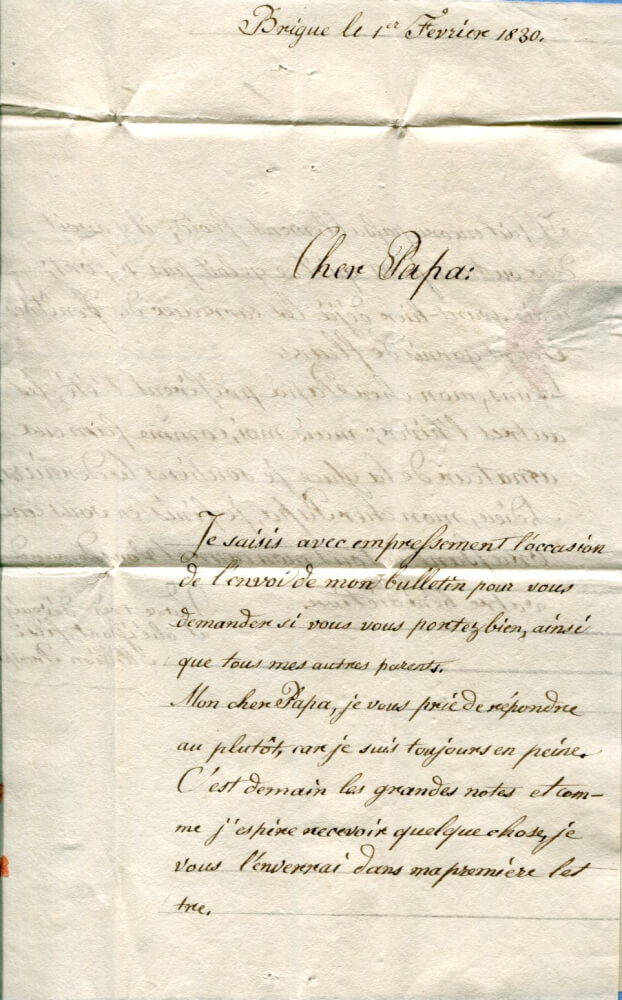 Brigue le 1er Février 1830.
Cher Papa:
Je saisis avec empressement l'occasion
de l'envoi de mon bulletin pour vous
demander si vous vous portez bien, ainsi
que tous mes autres parents.
Mon cher Papa, je vous prie de répondre
au plutôt, car je suis toujours en peine.
C'est demain les grandes notes et com-
me j'espère recevoir quelque chose, je
vous l'enverrai dans ma première let
tre.